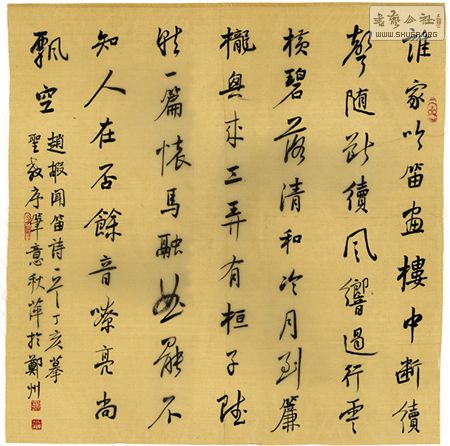 誰家吹笛畫樓中断續
聲随断續風響遏行雲
橫碧落清和冷月到簾
櫳興来三弄有桓子賦
就一篇懷馬融曲罷不
知人在否餘音嘹亮尚
飄空
趙嘏聞笛詩一首丁亥摹
聖教序筆意秋萍於鄭州
書藝公社
www.SHUFA.ORG